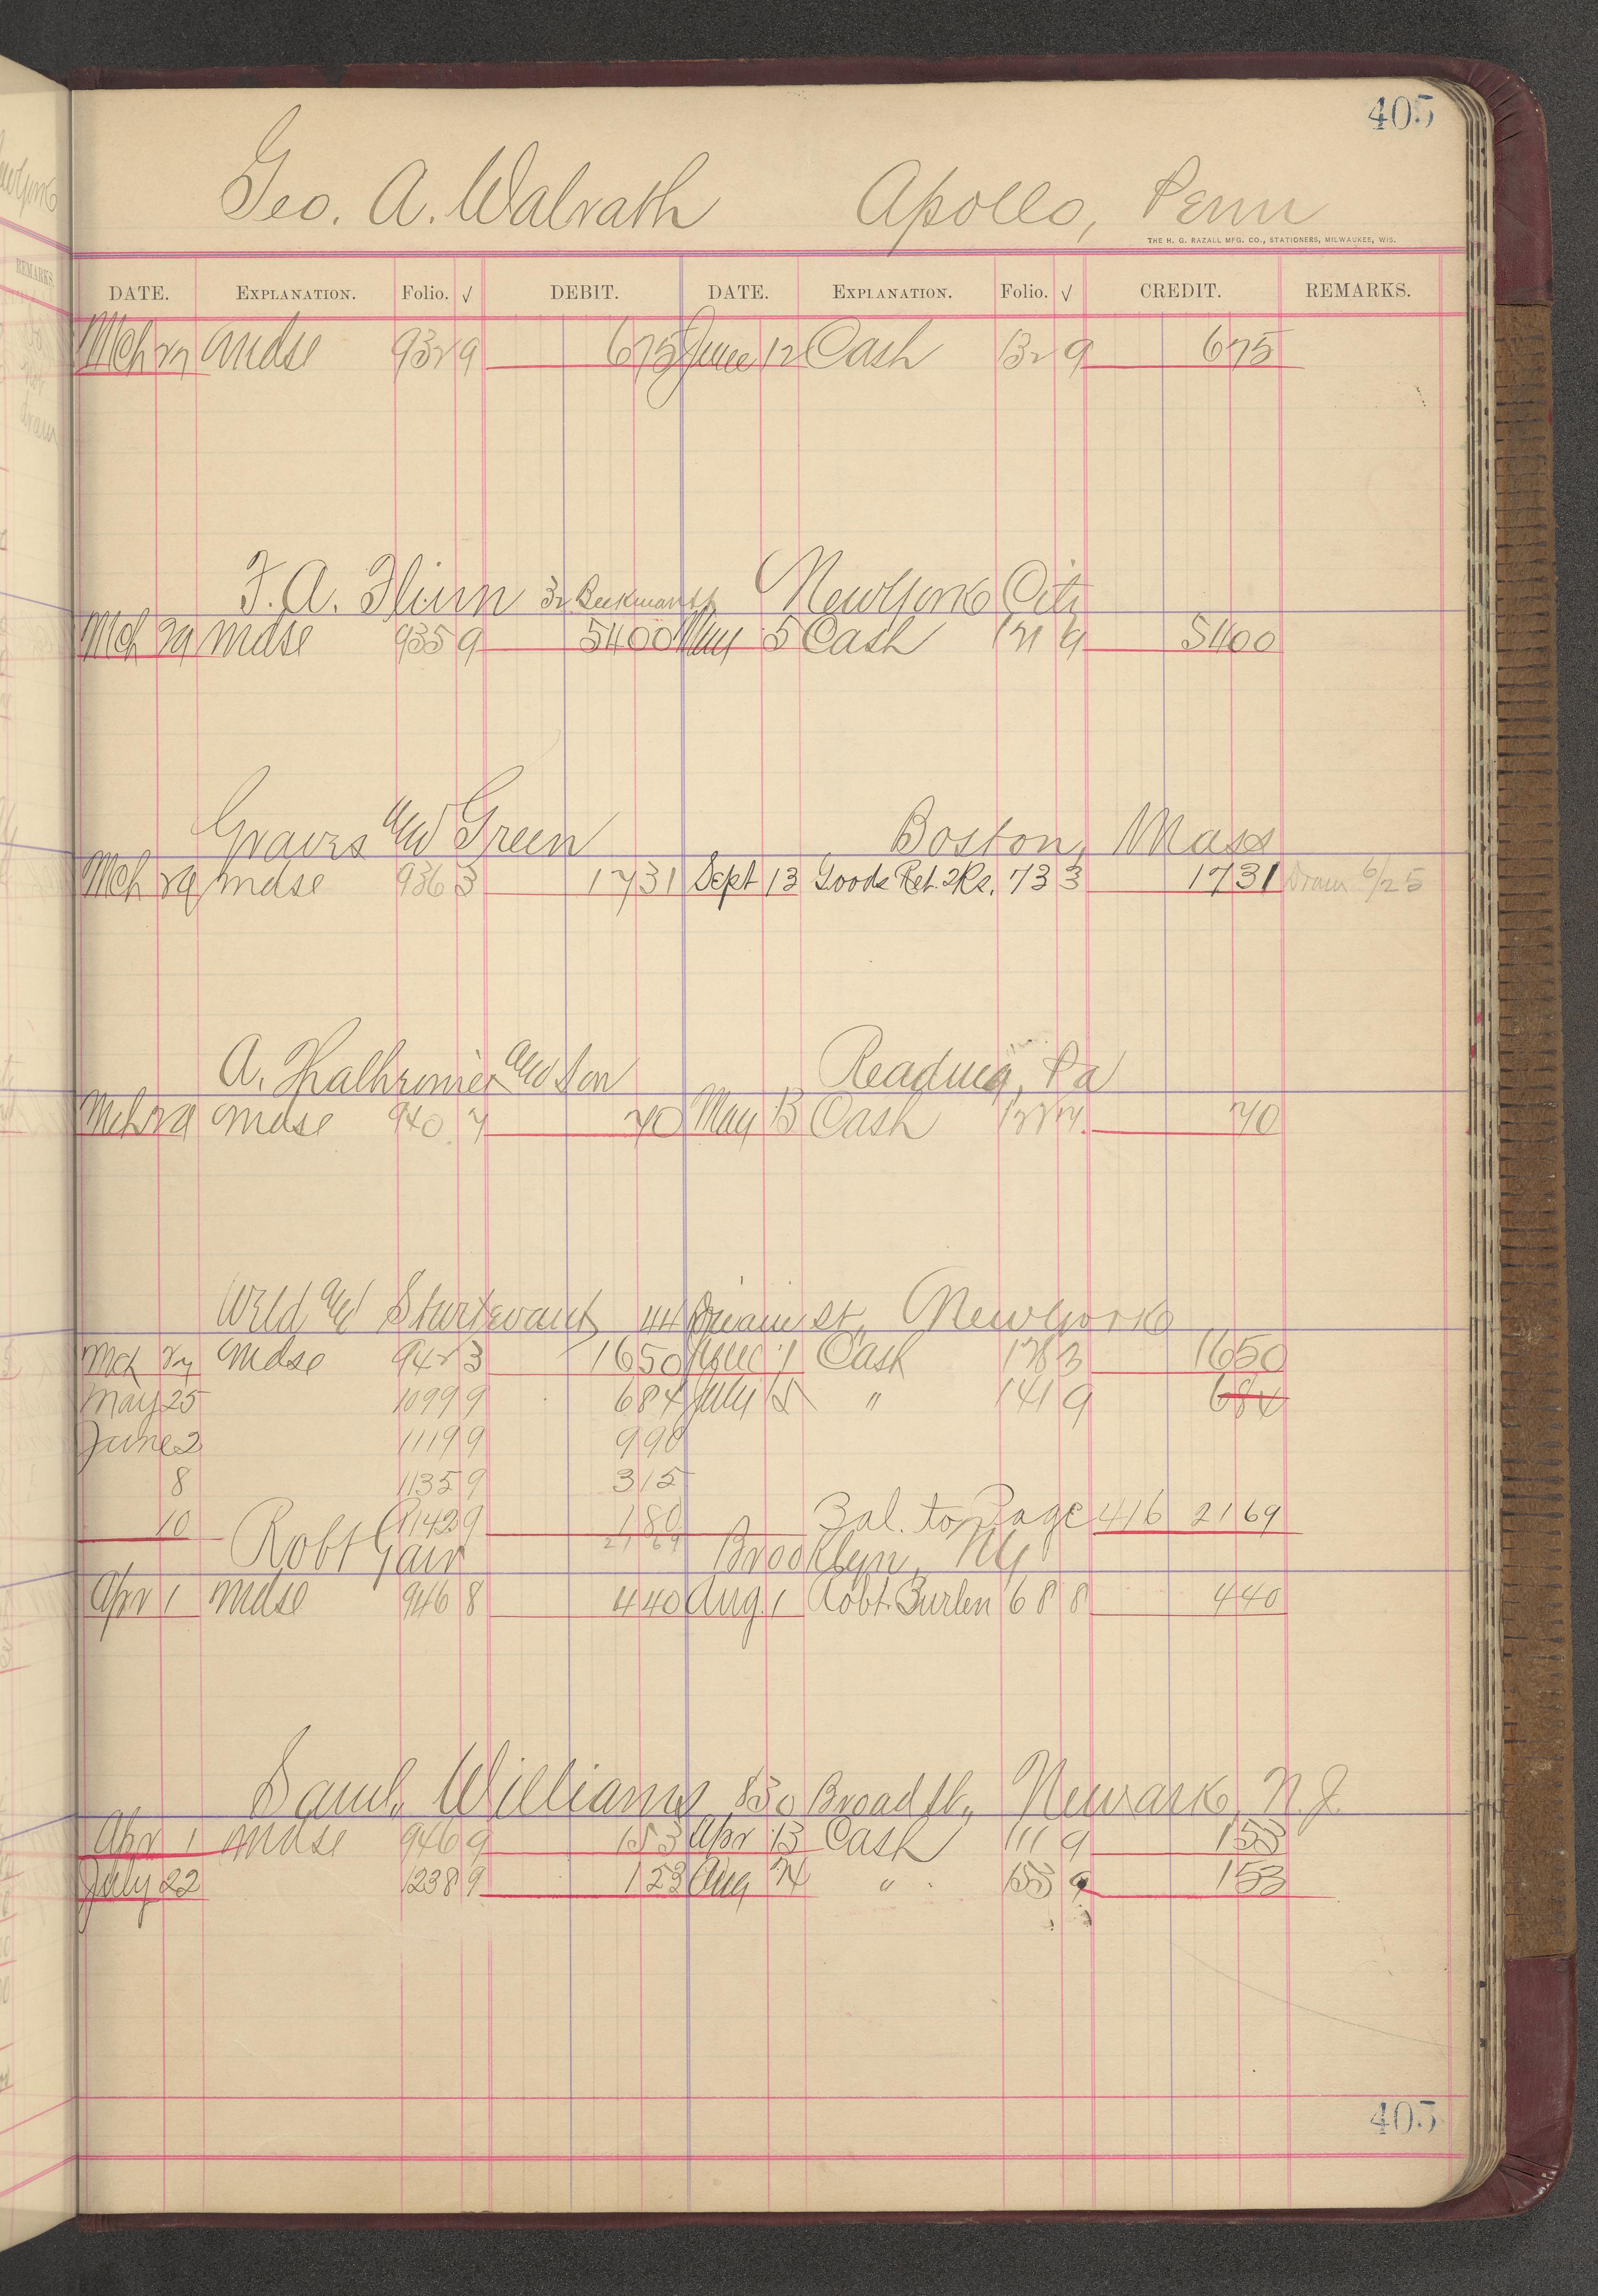 405
Geo. A. Walrath Apollo, Penn
THE H. G. RAZALL MFG. CO., STATIONERS, MILWAUKEE, WIS.
DATE. EXPLANATION. Folio. √ DEBIT. DATE. EXPLANATION. Folio. √ CREDIT. REMARKS.
Mch 27 Mdse 932 9 675 June 12 Cash 132 9 675
F. A. Flinn 32 Beekman St New York City
Mch 29 Mdse 935 9 5400 May 5 Cash 121 9 5400
Graves and Green Boston, Mass
Mch 29 Mdse 936 3 1731 Sept 13 Goods Ret. 2Rs. 73 3 1731 Drawn 6/25
A. and Son Reading, Pa
Mch 29 Mdse 940 7 70 May 13 Cash 7 70
Weld and Sturtevant 44 St. New York
Mch 27 Mdse 942 3 1650 June 1 Cash 128 3 1650
May 25 1099 9 684 July 15 " 141 9 684
June 2 1119 9 990
8 1135 9 315
10 1142 9 180 Bal. to Page 416 2169
2169
Robt Gair Brooklyn, NY
Apr 1 Mdse 946 8 440 Aug. 1 Robt. Burlen 68 8 440
Saml. Williams 830 Broad St., Newark, N.J.
Apr 1 Mdse 946 9 153 Apr 13 Cash 111 9 153
July 22 1238 9 153 Aug 24 " 155 9 153
405